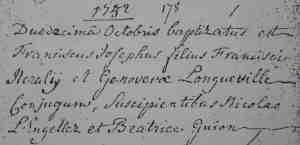 1752 178
Duodecima Octobris baptizatus est
Franciscus Josephus filius Francisci
et Genovevæ Longueville
Conjugum, Suscipientibus Nicolao
L'Engellez et Beatrice Guion